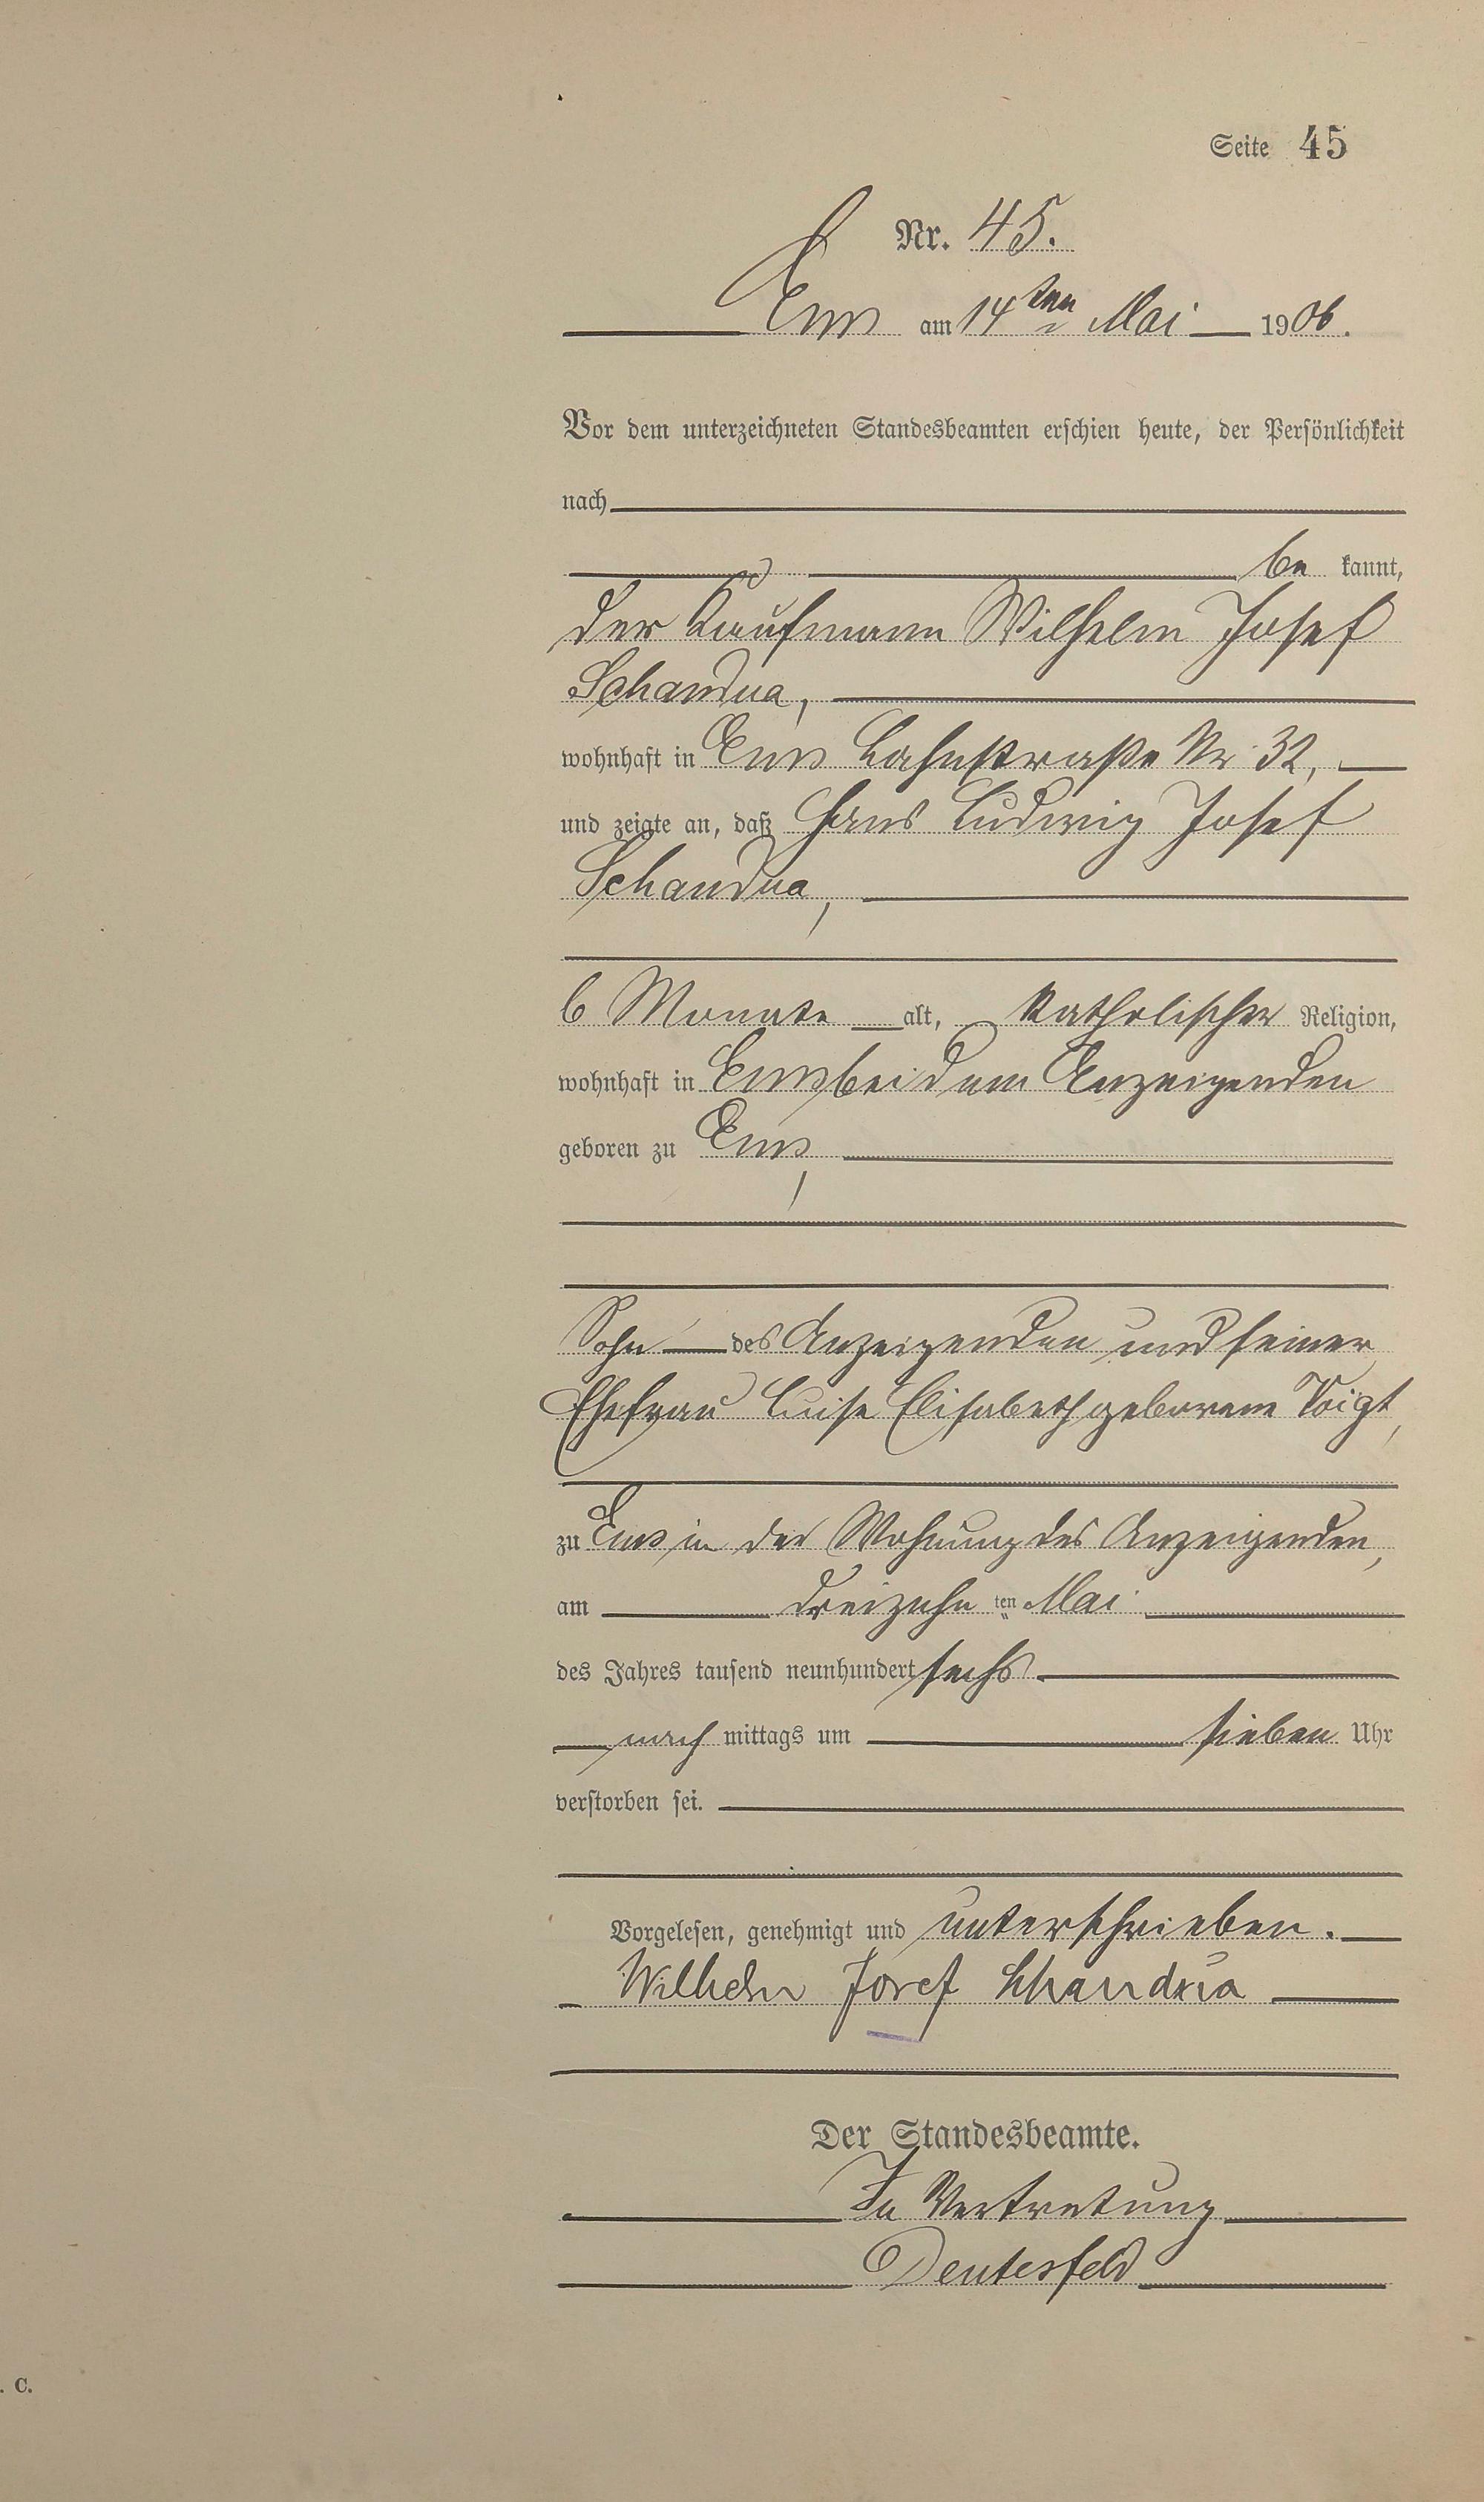 Seite 45
Nr. 45.
Ems am 14ten Mai 1906.
Vor dem unterzeichneten Standesbeamten erschien heute, der Persönlichkeit
nach
be kannt,
der Kaufmann Wilhelm Josef
Schandua,
wohnhaft in Ems Lahnstraße Nr 32,
und zeigte an, daß Hans Ludwig Josef
Schandua,
6 Monate alt, katholischer Religion,
wohnhaft in Ems bei dem Anzeigenden
geboren zu Ems,
Sohn des Anzeigenden und seiner
Ehefrau Luise Elisabeth geborene Voigt,
zu Ems in der Wohnung des Anzeigenden,
am dreizehn ten Mai
des Jahres tausend neunhundert sechs
nach mittags um sieben Uhr
verstorben sei.
Vorgelesen, genehmigt und unterschrieben.
Wilhelm Josef Schandua
Der Standesbeamte.
In Vertretung
Deutesfeld
. C.